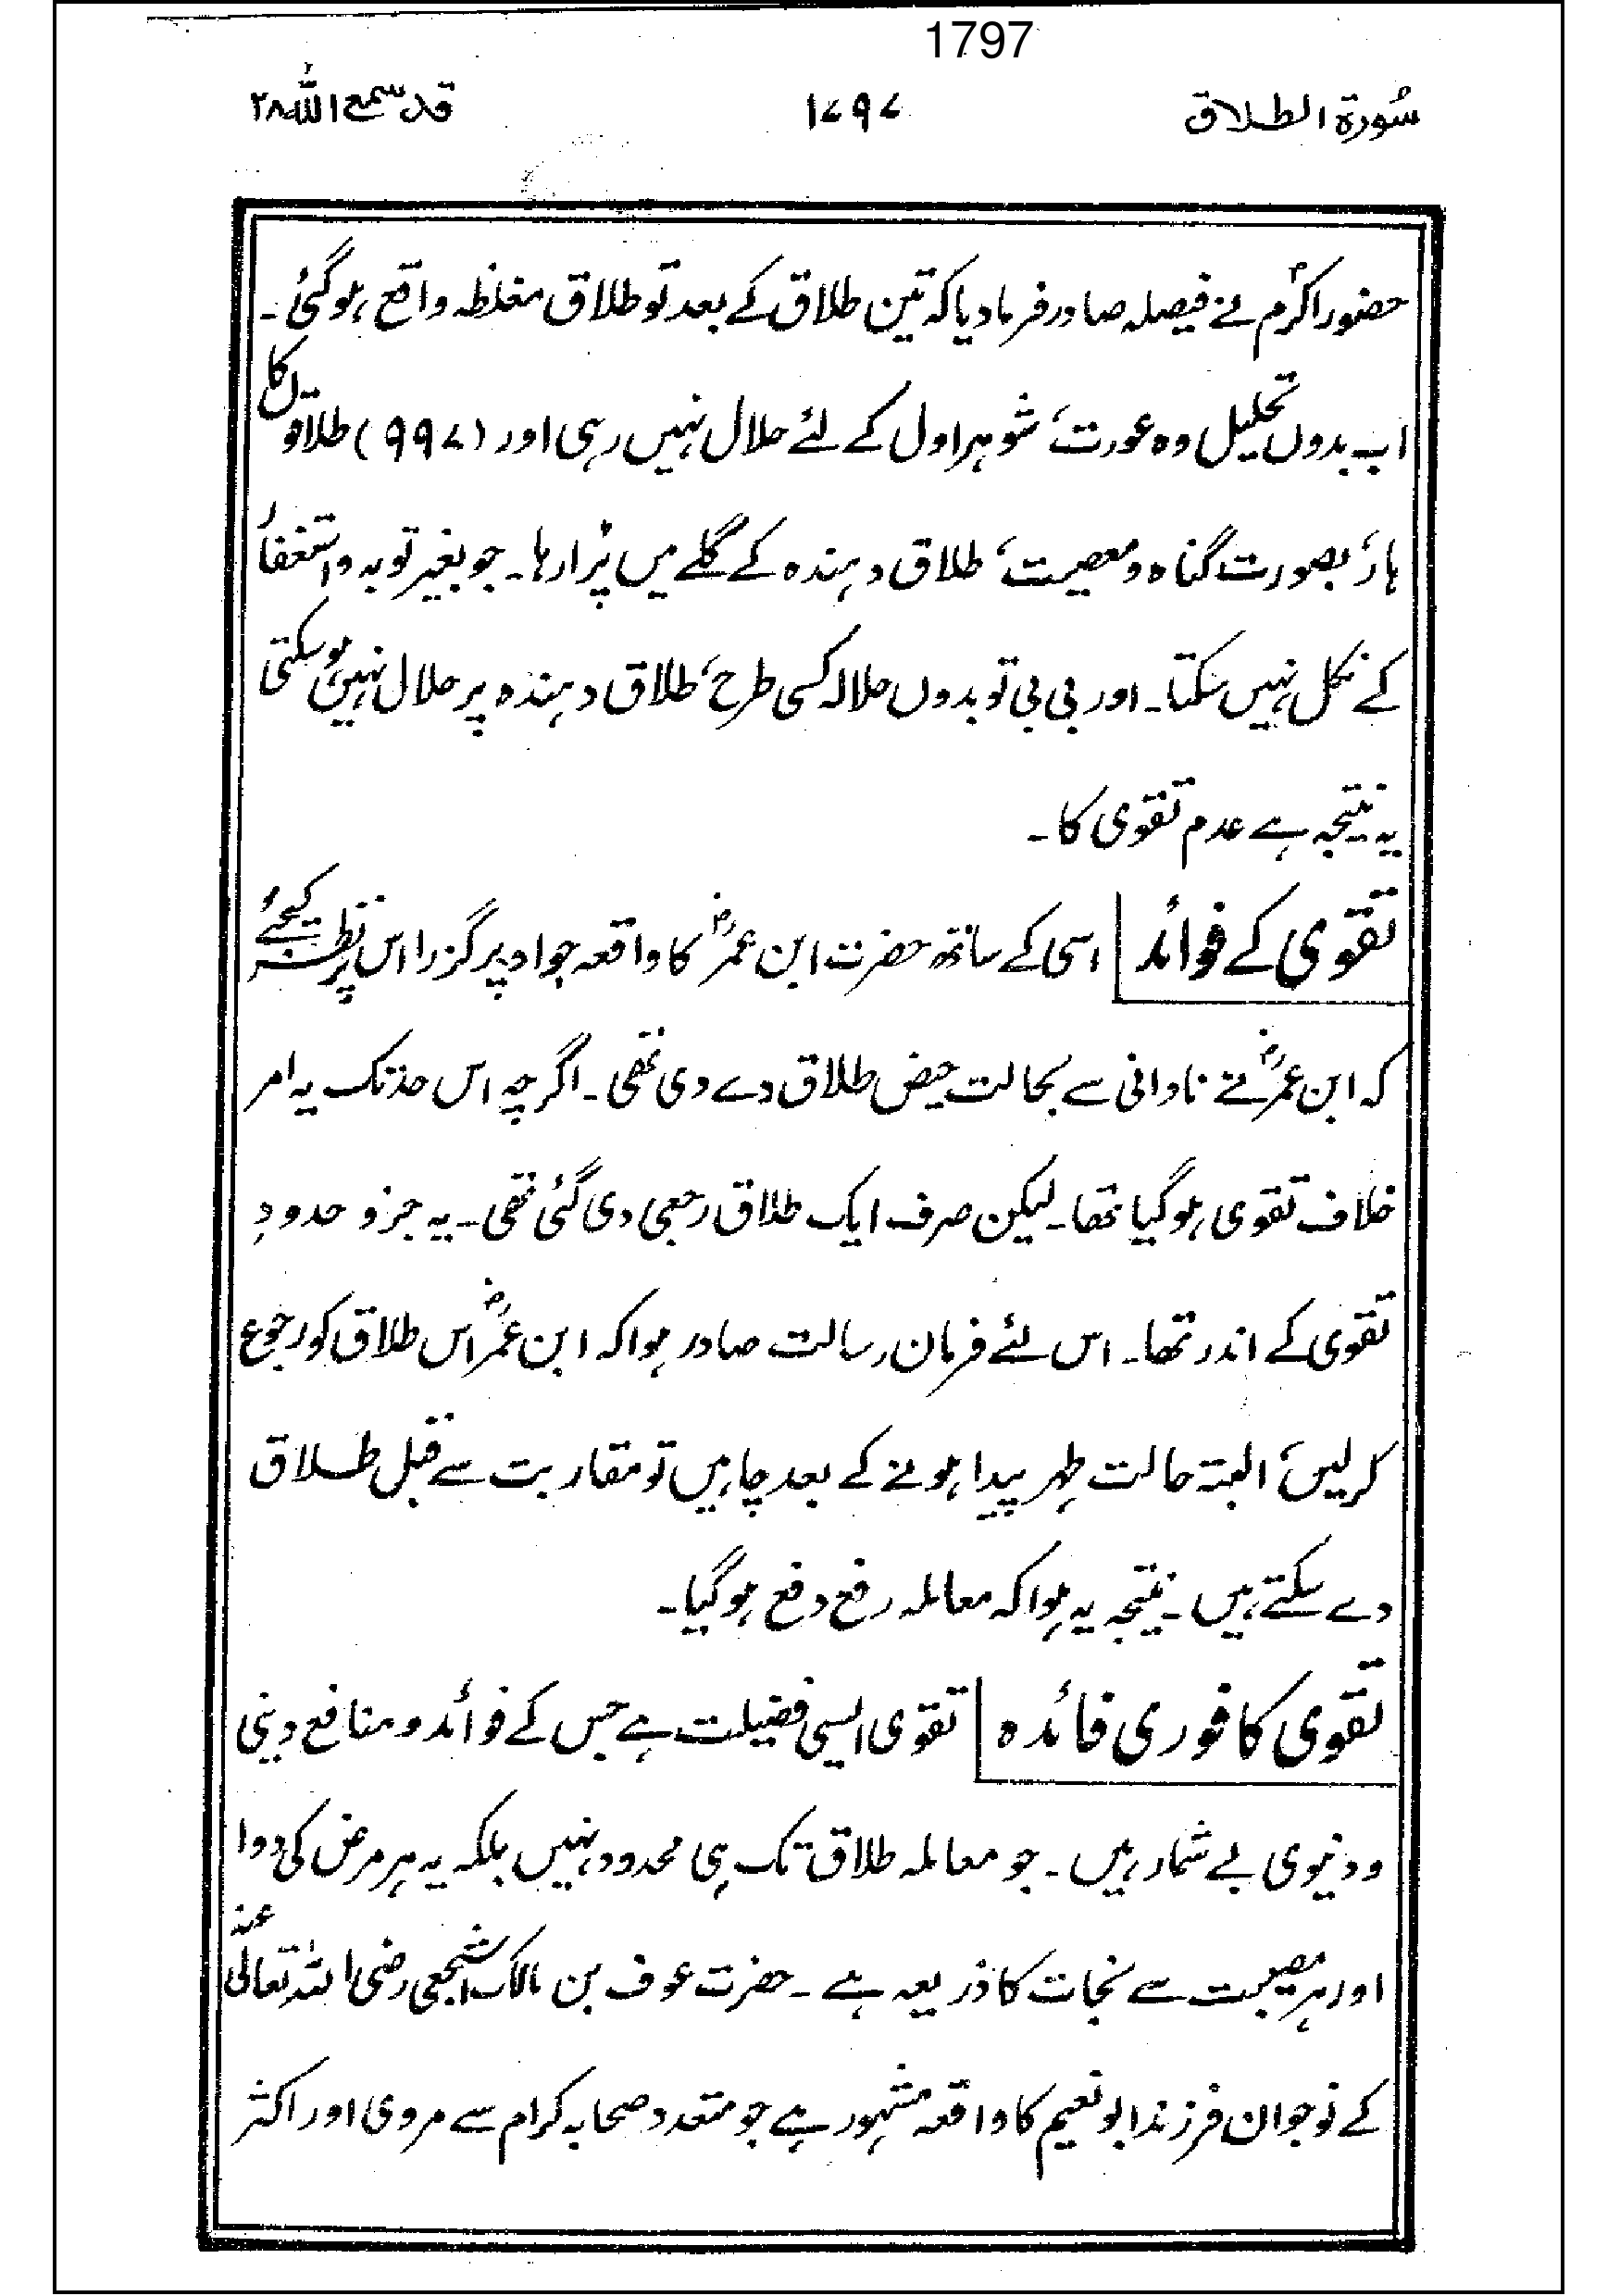 1797
سُورۃ الطلاق ۱۷۹۷ قد سمع اللہُ ۲۸
حضور اکرمؐ نے فیصلہ صادر فرما دیا کہ تین طلاق کے بعد تو طلاق مغلظہ واقع ہوگئی۔
اب بدوں تحلیل وہ عورت، شوہر اول کے لئے حلال نہیں رہی اور (۹۹۷) طلاقوں کا
ہار، بصورت گناہ و معصیت، طلاق دہندہ کے گلے میں پڑا رہا۔ جو بغیر توبہ و استغفار
کے نکل نہیں سکتا۔ اور بی بی تو بدوں حلالہ کسی طرح، طلاق دہندہ پر حلال نہیں ہوسکتی
یہ نتیجہ ہے عدم تقوی کا۔
تقوی کے فوائد | اسی کے ساتھ حضرت ابن عمرؓ کا واقعہ جو اوپر گزرا اس پر نظر کیجئے
کہ ابن عمرؓ نے نادانی سے بحالت حیض طلاق دے دی تھی۔ اگرچہ اس حد تک یہ امر
خلاف تقوی ہوگیا تھا۔ لیکن صرف ایک طلاق رجعی دی گئی تھی۔ یہ جزو حدودِ
تقوی کے اندر تھا۔ اس لئے فرمان رسالت صادر ہوا کہ ابن عمرؓ اس طلاق کو رجوع
کرلیں، البتہ حالت طہر پیدا ہونے کے بعد چاہیں تو مقاربت سے قبل طلاق
دے سکتے ہیں۔ نتیجہ یہ ہوا کہ معاملہ رفع دفع ہوگیا۔
تقوی کا فوری فائدہ | تقوی ایسی فضیلت ہے جس کے فوائد و منافع دینی
و دنیوی بے شمار ہیں۔ جو معاملہ طلاق تک ہی محدود نہیں بلکہ یہ ہر مرض کی دوا
اور ہر مصیبت سے نجات کا ذریعہ ہے۔ حضرت عوف بن مالک اشجعی رضی اللہ تعالٰی عنہ
کے نوجوان فرزند ابو نعیم کا واقعہ مشہور ہے جو متعدد صحابہ کرام سے مروی اور اکثر